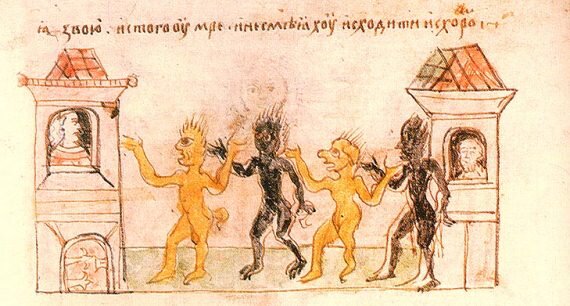 ꙗзвою · и стого оумре · и несмѣꙗхоу исходити исхоро